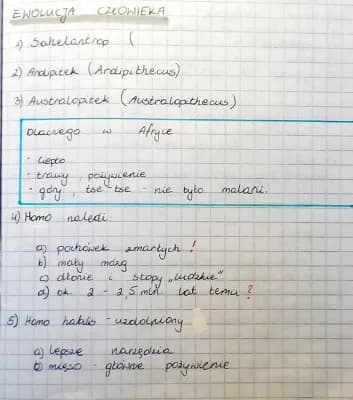 EWOLUCJA CZŁOWIEKA
1) Sahelantrop (
2) Ardipitek (Ardipithecus)
3) Australopitek (Australopithecus)
Dlaczego w Afryce
· ciepło
· trawy, pożywienie
· góry, tse tse - nie było malarii.
4) Homo naledi:
a) pochówek zmarłych !
b) mały mózg
c) dłonie i stopy „ludzkie”
d) ok. 2 - 2,5 mln. lat temu ?
5) Homo habilis - uzdolniony
a) lepsze narzędzia
b) mięso - główne pożywienie